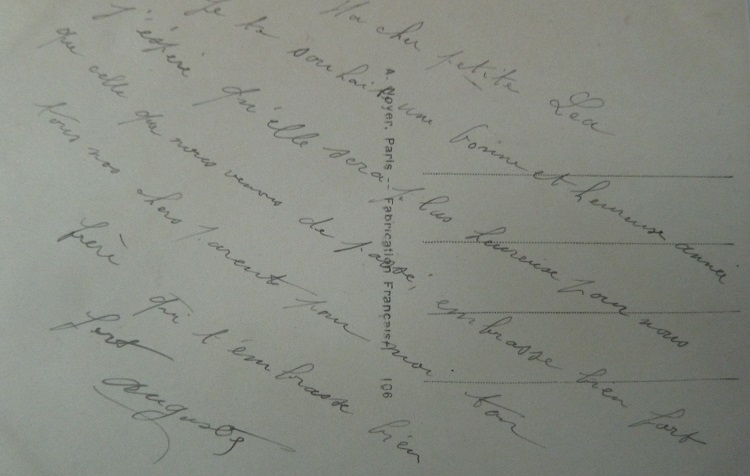 Ma cher petite Léa
Je te souhait une bonne et heureuse anné
j'éspére qu'elle sera plus heureuse pour nous
que celle que nous venons de passé, embrasse bien fort
tous nos chers parents pour moi ton
frère qui t'embrasse bien
fort
Auguste
A. Noyer. Paris -- Fabrication Française 106